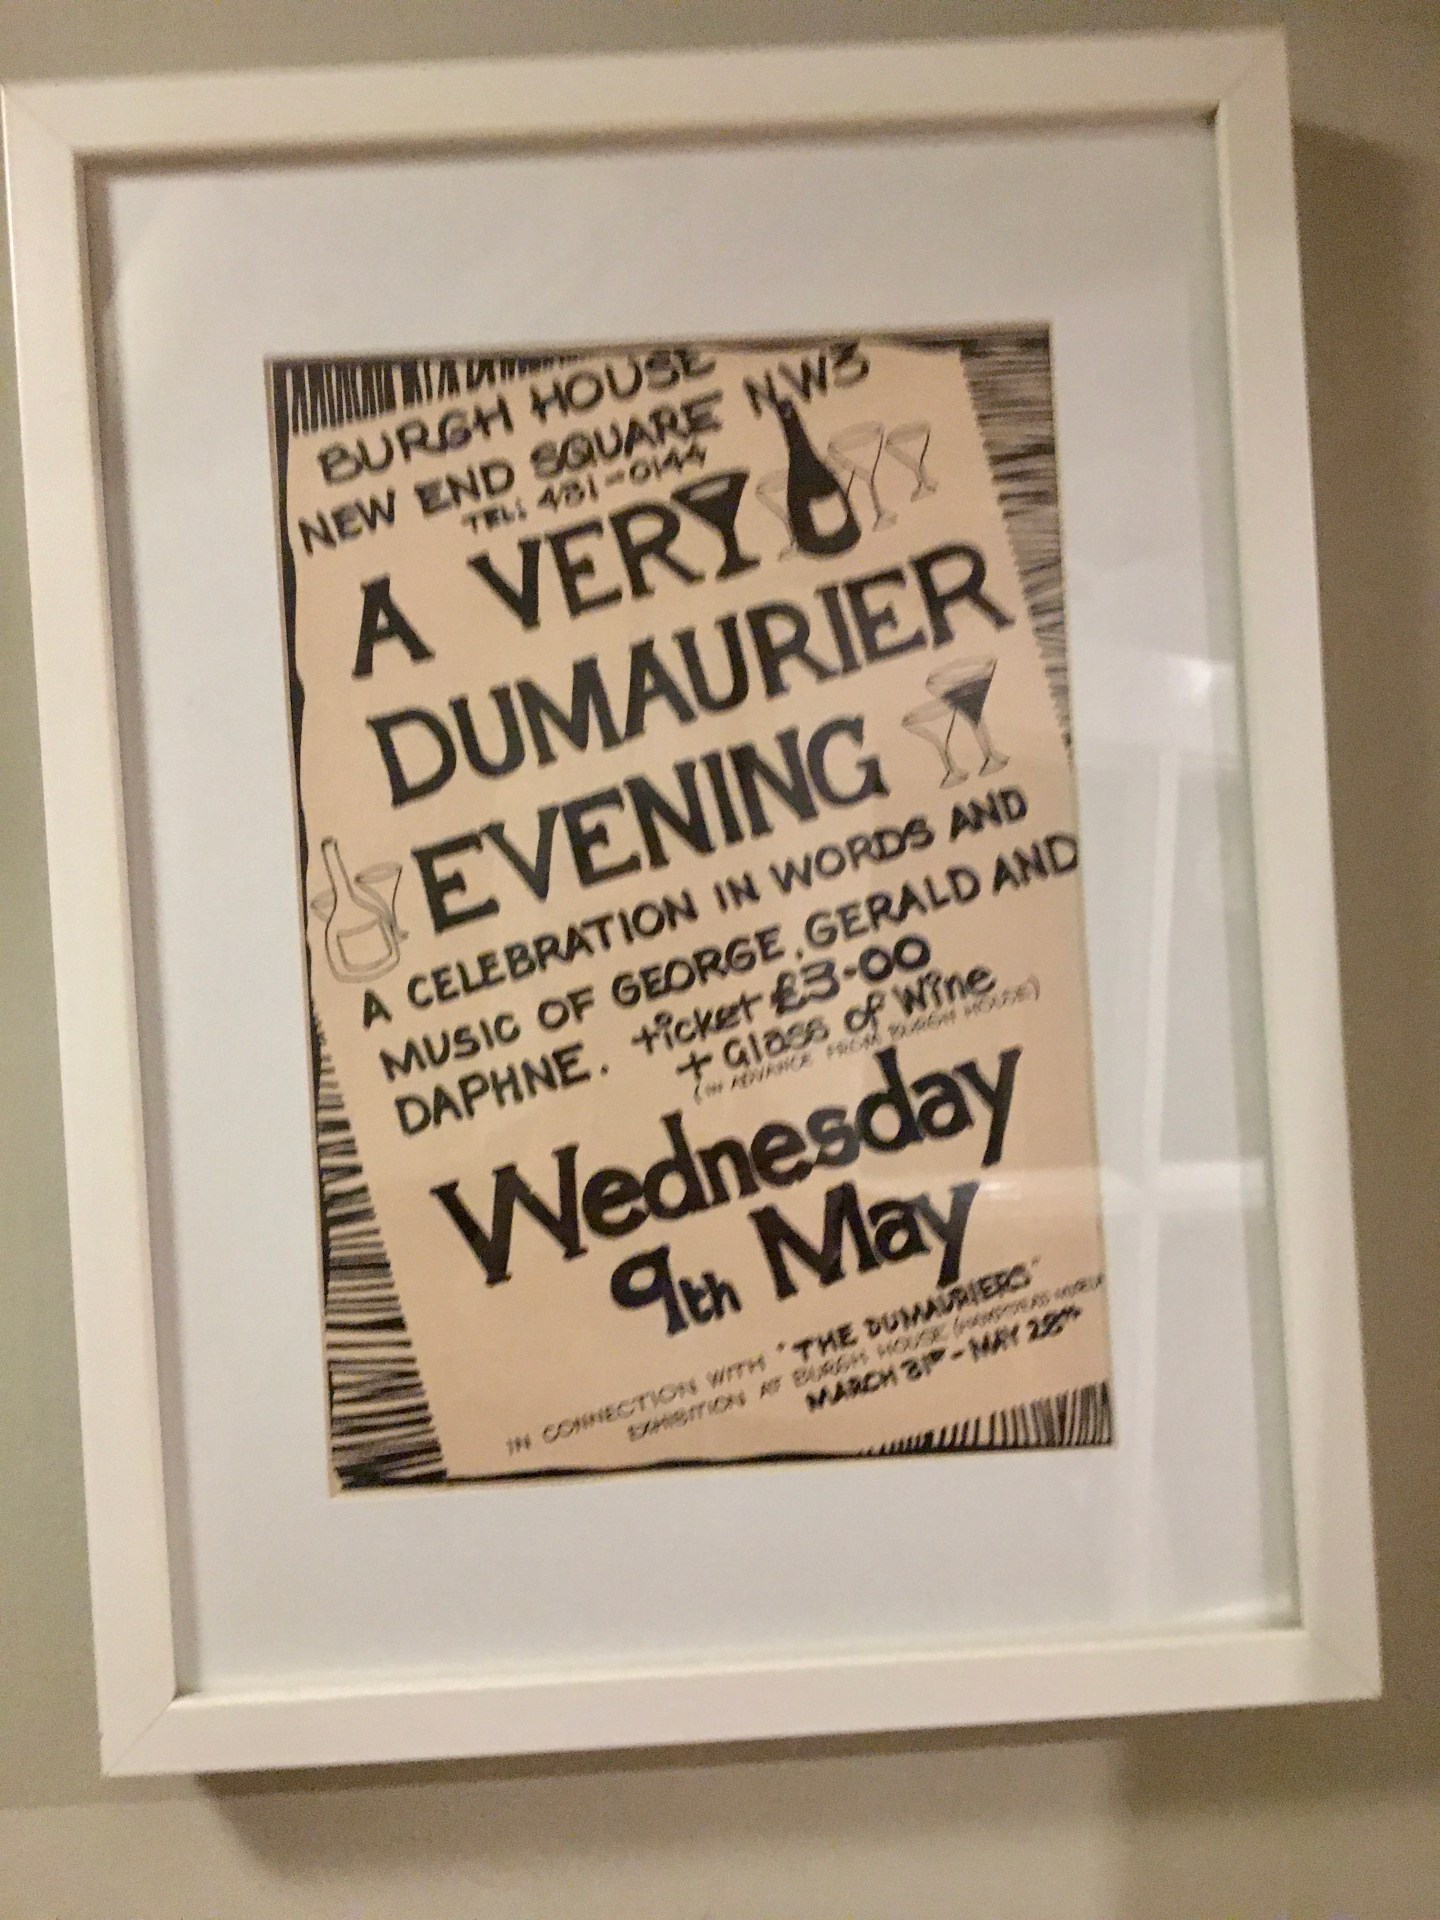 BURGH HOUSE
NEW END SQUARE NW3
TEL: 431-0144
A VERY
DUMAURIER
EVENING
A CELEBRATION IN WORDS AND
MUSIC OF GEORGE, GERALD AND
DAPHNE. ticket £3-00
+ Glass of Wine
(IN ADVANCE FROM BURGH HOUSE)
Wednesday
9th May
IN CONNECTION WITH "THE DUMAURIERS"
EXHIBITION AT BURGH HOUSE (HAMPSTEAD MUSEUM
MARCH 31st - MAY 28th